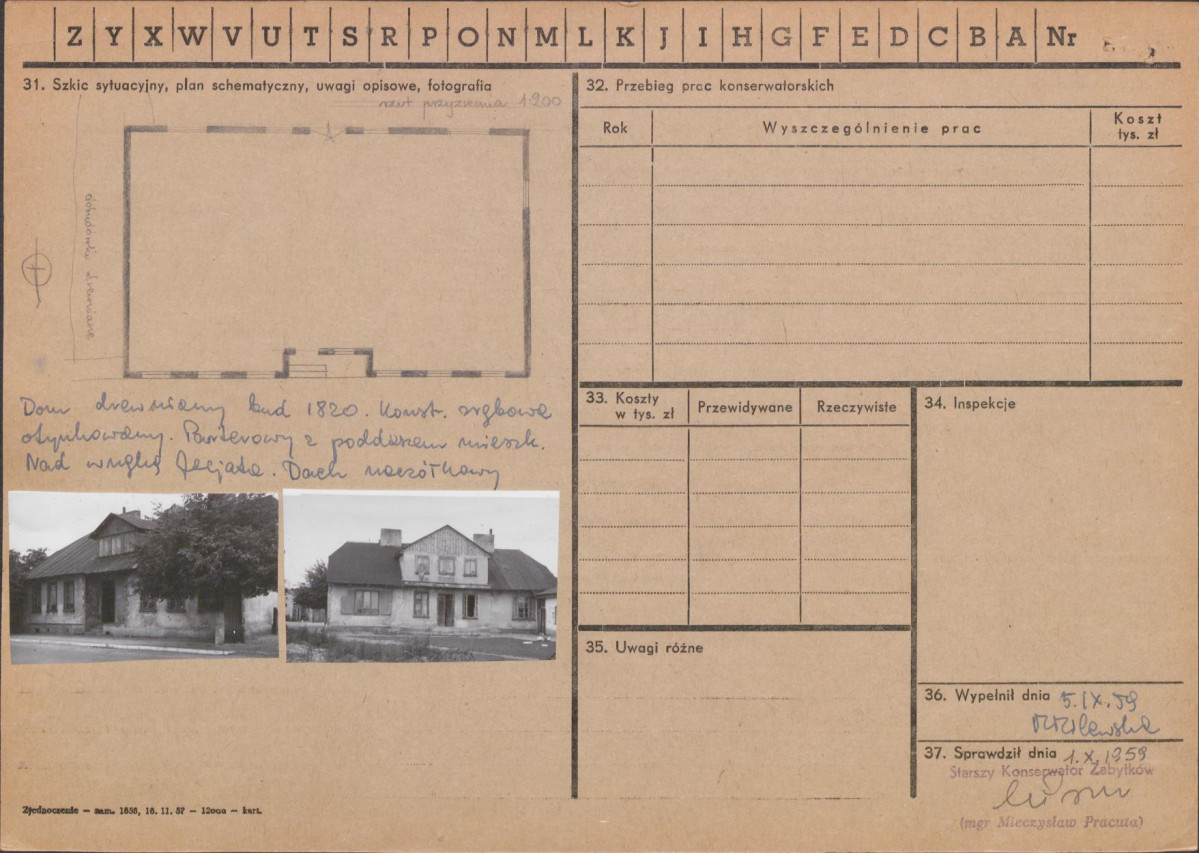 Z Y X W V U T S R P O N M L K J I H G F E D C B A Nr
31. Szkic sytuacyjny, plan schematyczny, uwagi opisowe, fotografia
rzut przyziemia 1:200
dobudówki drewniane
Dom drewniany bud 1820. Konst. zrębowa
otynkowany. Parterowy z poddaszem mieszk.
Nad wnęką facjata. Dach naczółkowy
Zjednoczenie — zam. 1656, 16. 11. 57 — 12000 — kart.
32. Przebieg prac konserwatorskich
Rok Wyszczególnienie prac Koszt
tys. zł
33. Koszty
w tys. zł Przewidywane Rzeczywiste
34. Inspekcje
35. Uwagi różne
36. Wypełnił dnia 5.IX.59
37. Sprawdził dnia 1.X.1959
Starszy Konserwator Zabytków
(mgr Mieczysław Pracuta)